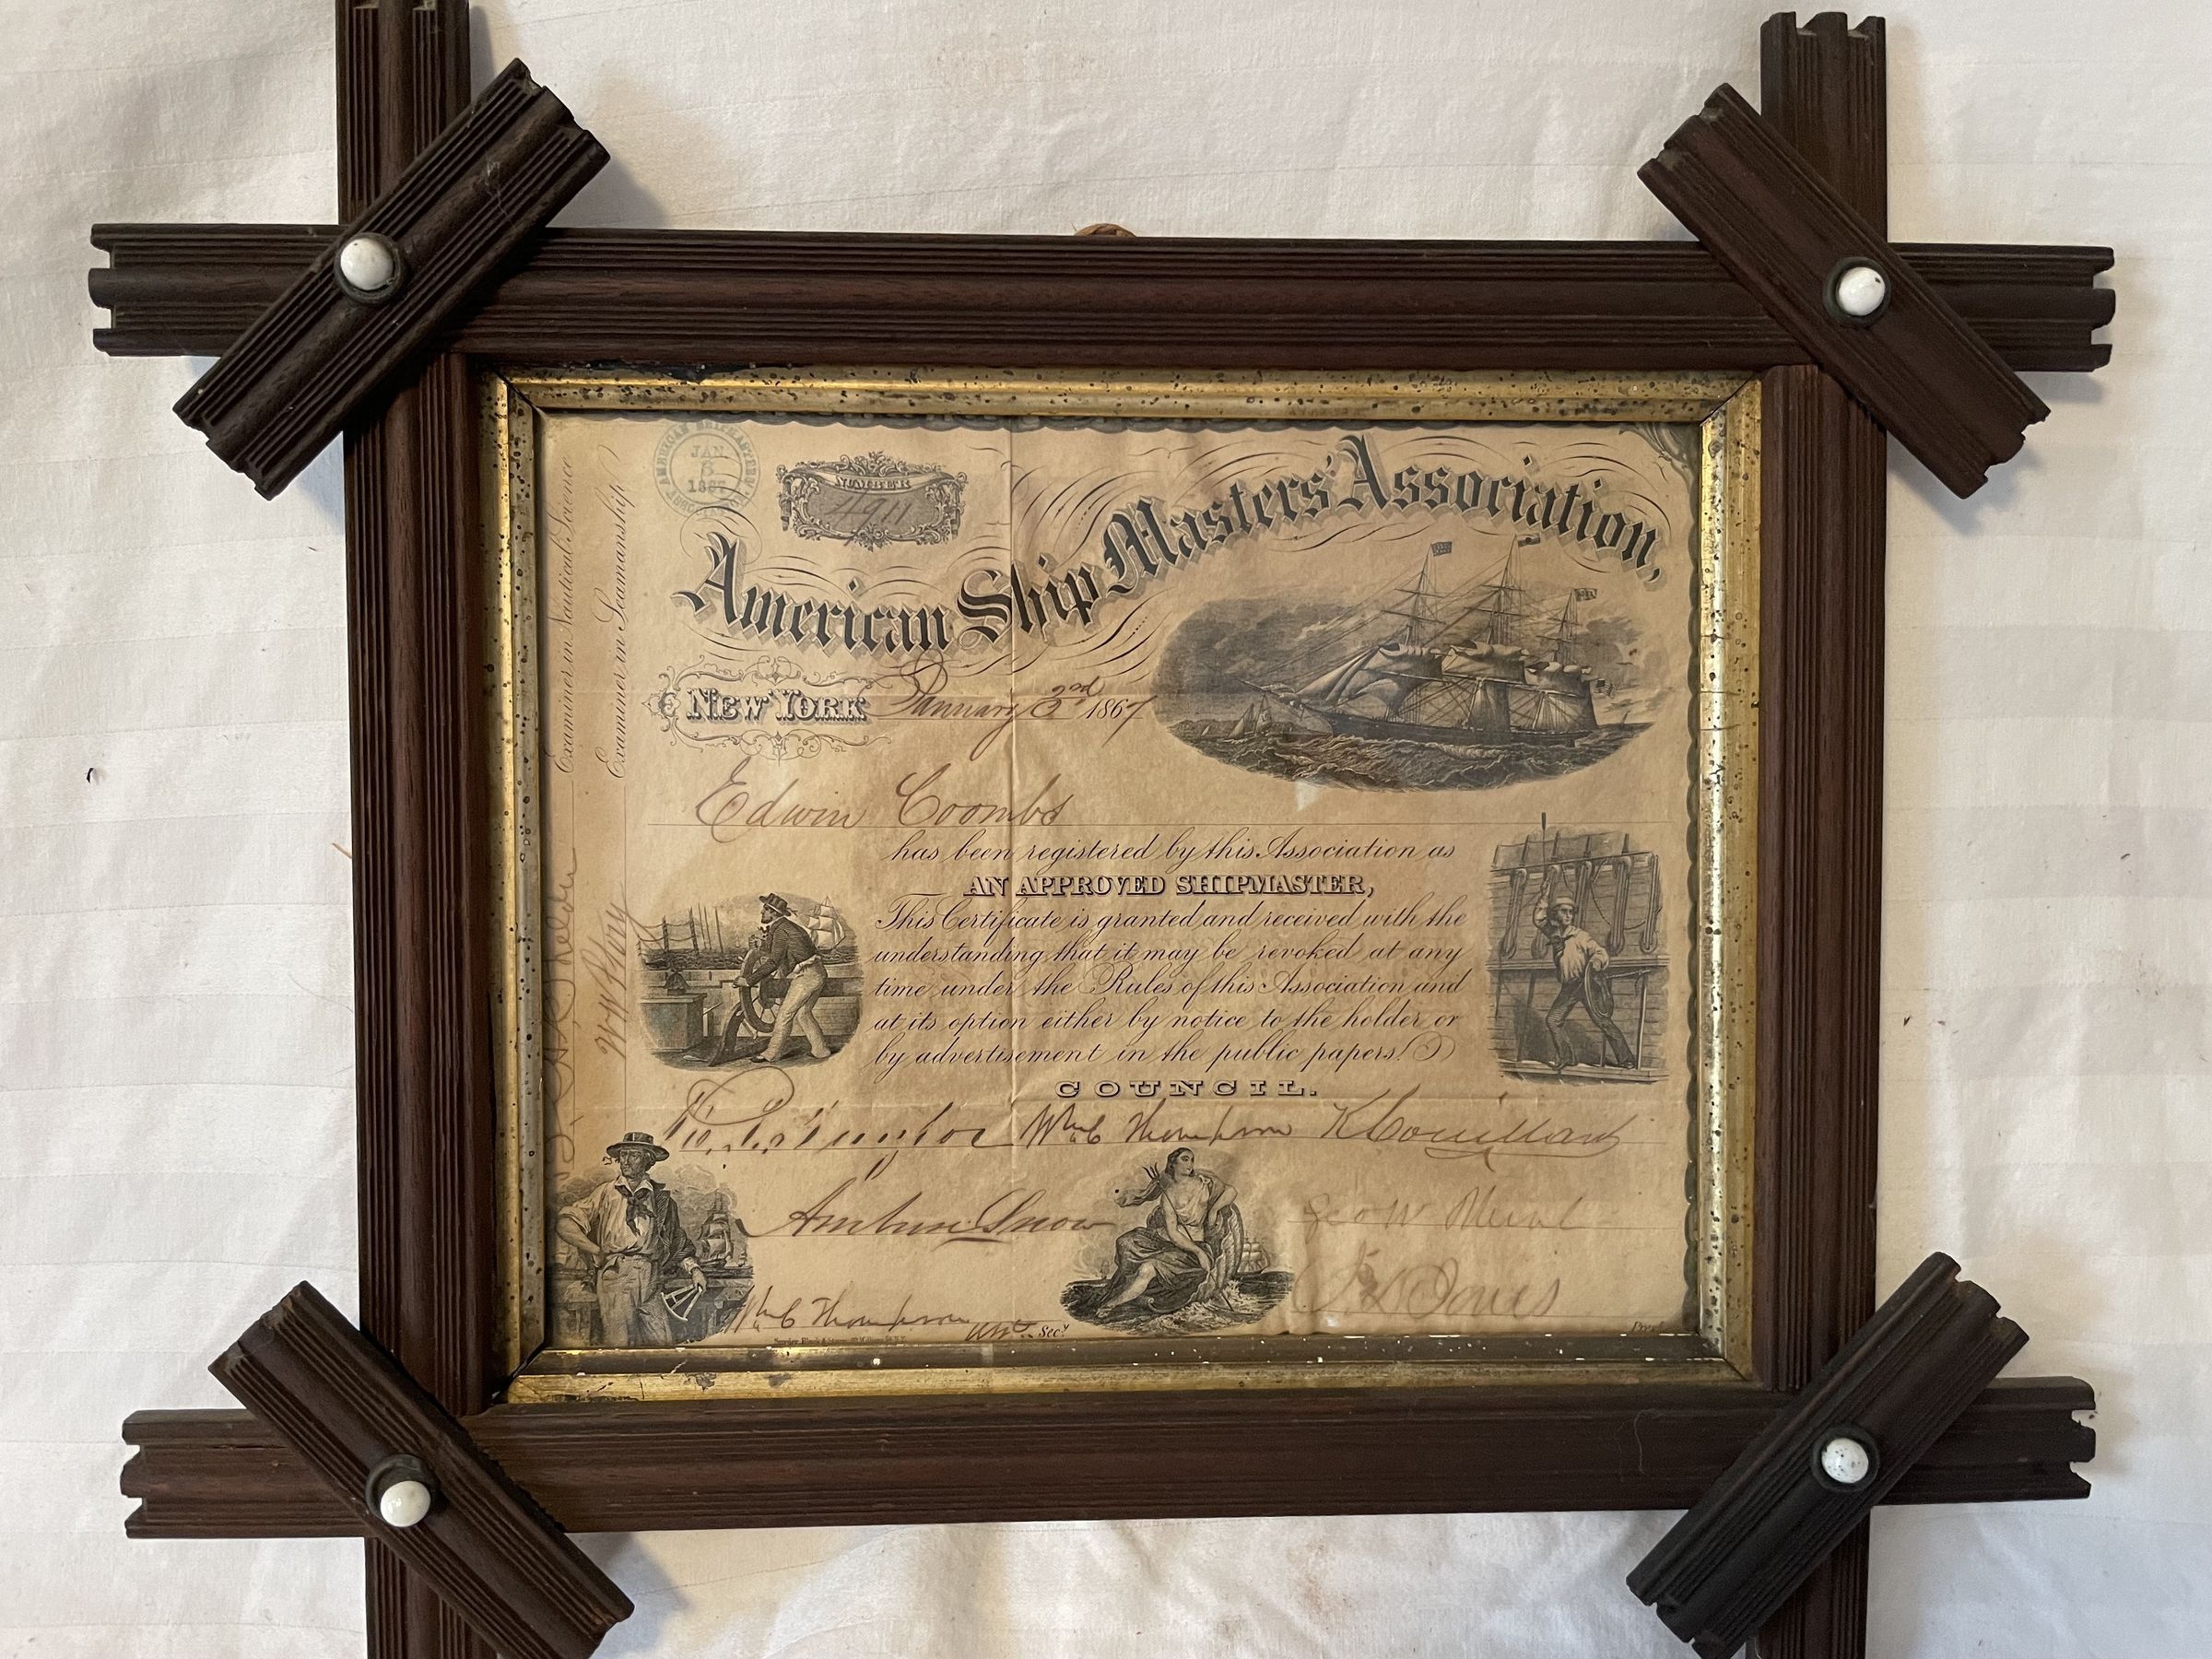 AMERICAN SHIPMASTERS'
JAN
3
1867
NUMBER
4911
American Ship Masters' Association,
New York January 2nd 1867
Edwin Coombs
has been registered by this Association as
AN APPROVED SHIPMASTER,
This Certificate is granted and received with the
understanding that it may be revoked at any
time under the Rules of this Association and
at its option either by notice to the holder or
by advertisement in the public papers.
COUNCIL.
Wm C Thompson
Snow
Geo W
Wm C Thompson Secy
Prest
Examiner in Nautical Science
Examiner in Seamanship